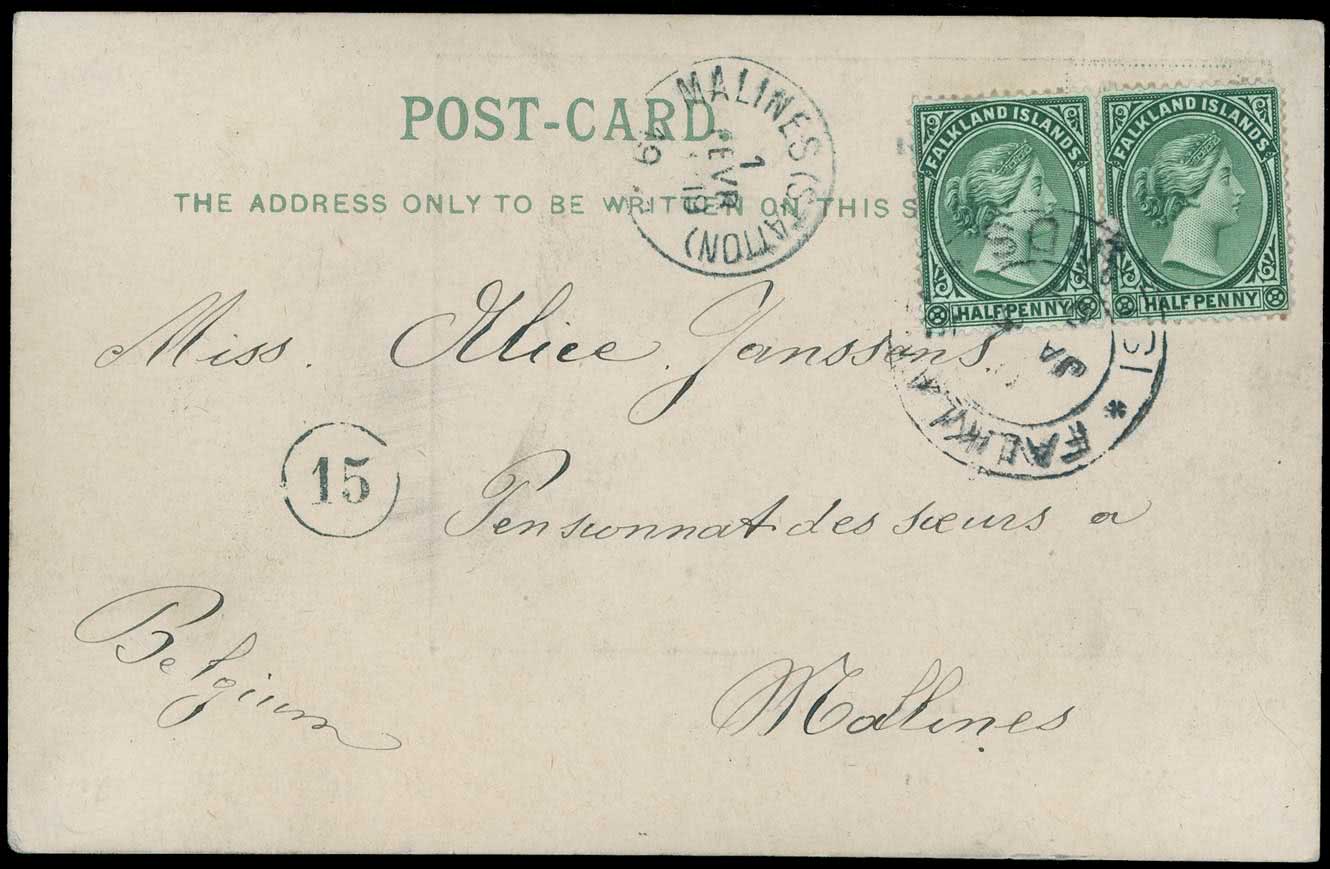 POST-CARD.
THE ADDRESS ONLY TO BE WRITTEN ON THIS S
MALINES (STATION)
1
FEVR
19
FALKLAND ISLANDS
HALFPENNY
FALKLAND ISLANDS
HALFPENNY
FALKLA
JA
Miss. Alice Janssens.
15
Pensionnat des sœurs a
Malines
Belgium